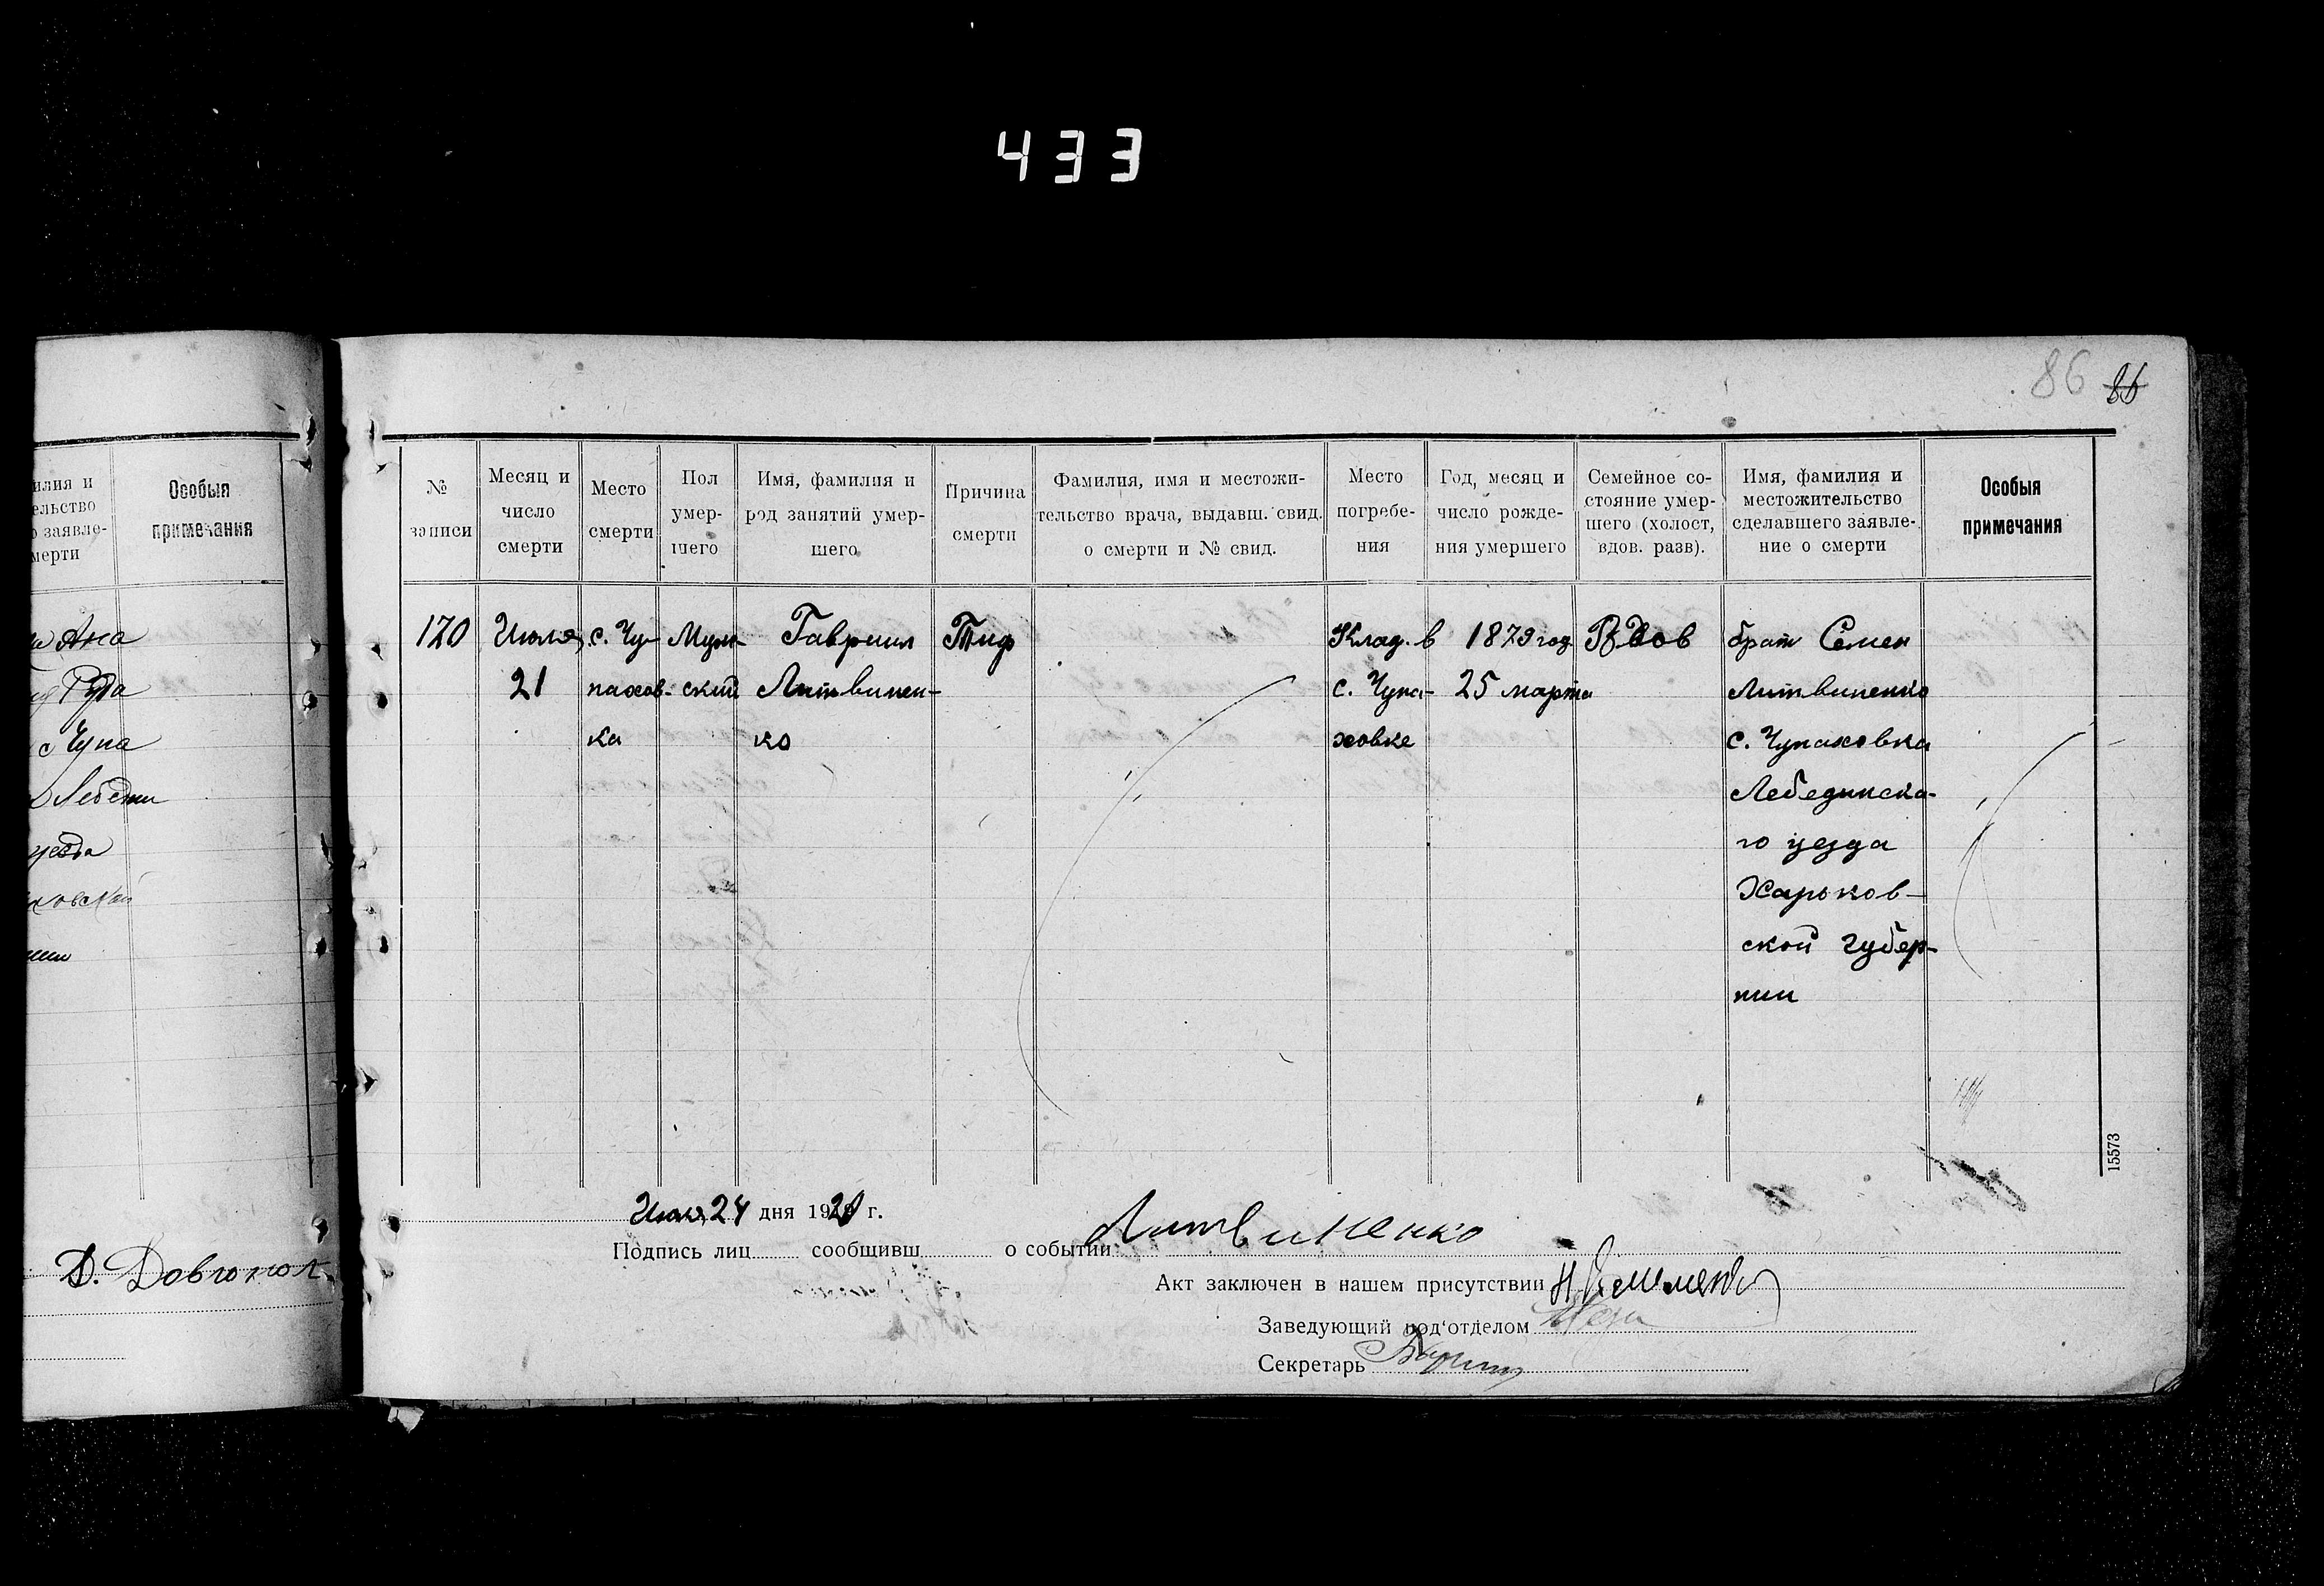 433
86 86
илия и
ельство
о заявле-
мерти
Особыя
примечания
Ана
Руда
с Чупа
Лебеди
уезда
ховской
нии
Д. Довгопол
№
записи
Месяц и
число
смерти
Место
смерти
Пол
умер-
шего
Имя, фамилия и
род занятий умер-
шего
Причина
смерти
Фамилия, имя и местожи-
тельство врача, выдавш. свид.
о смерти и № свид.
Место
погребе-
ния
Год, месяц и
число рожде-
ния умершего
Семейное со-
стояние умер-
шего (холост,
вдов. разв).
Имя, фамилия и
местожительство
сделавшего заявле-
ние о смерти
Особыя
примечания
120
Июля
21
с. Чу-
пахов-
ка
Муж-
ский
Гавриил
Литвинен-
ко
Тиф
Клад. в
с. Чупа-
ховке
1879 год
25 марта
Вдов
брат Семен
Литвиненко
с. Чупаховка
Лебединска-
го уезда
Харьков-
ской губер-
нии
15573
Июля 24 дня 1920 г.
Подпись лиц сообщивш о событии Литвиненко
Акт заключен в нашем присутствии
Заведующий под'отделом
Секретарь